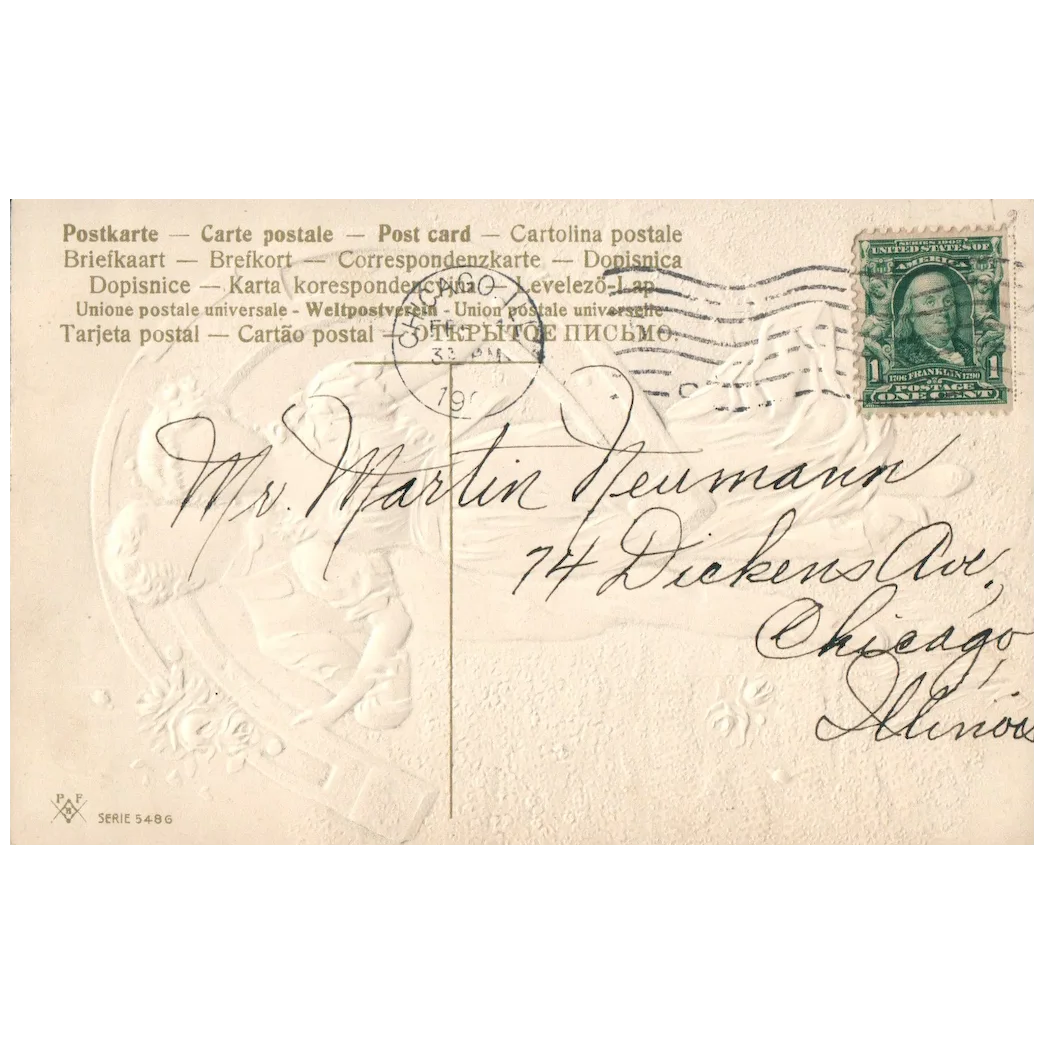 Postkarte — Carte postale — Post card — Cartolina postale
Briefkaart — Brefkort — Correspondenzkarte — Dopisnica
Dopisnice — Karta korespondencyjna — Levelező-Lap
Unione postale universale - Weltpostverein - Union postale universelle
Tarjeta postal — Cartão postal — ОТКРЫТОЕ ПИСЬМО.
CHICAGO, ILL
PM
SERIES 1902
UNITED STATES OF
AMERICA
1 1706 FRANKLIN 1790 1
POSTAGE
ONE CENT
Mr. Martin Neumann
74 Dickens Ave,
Chicago,
Illinois
P F
B
SERIE 5486